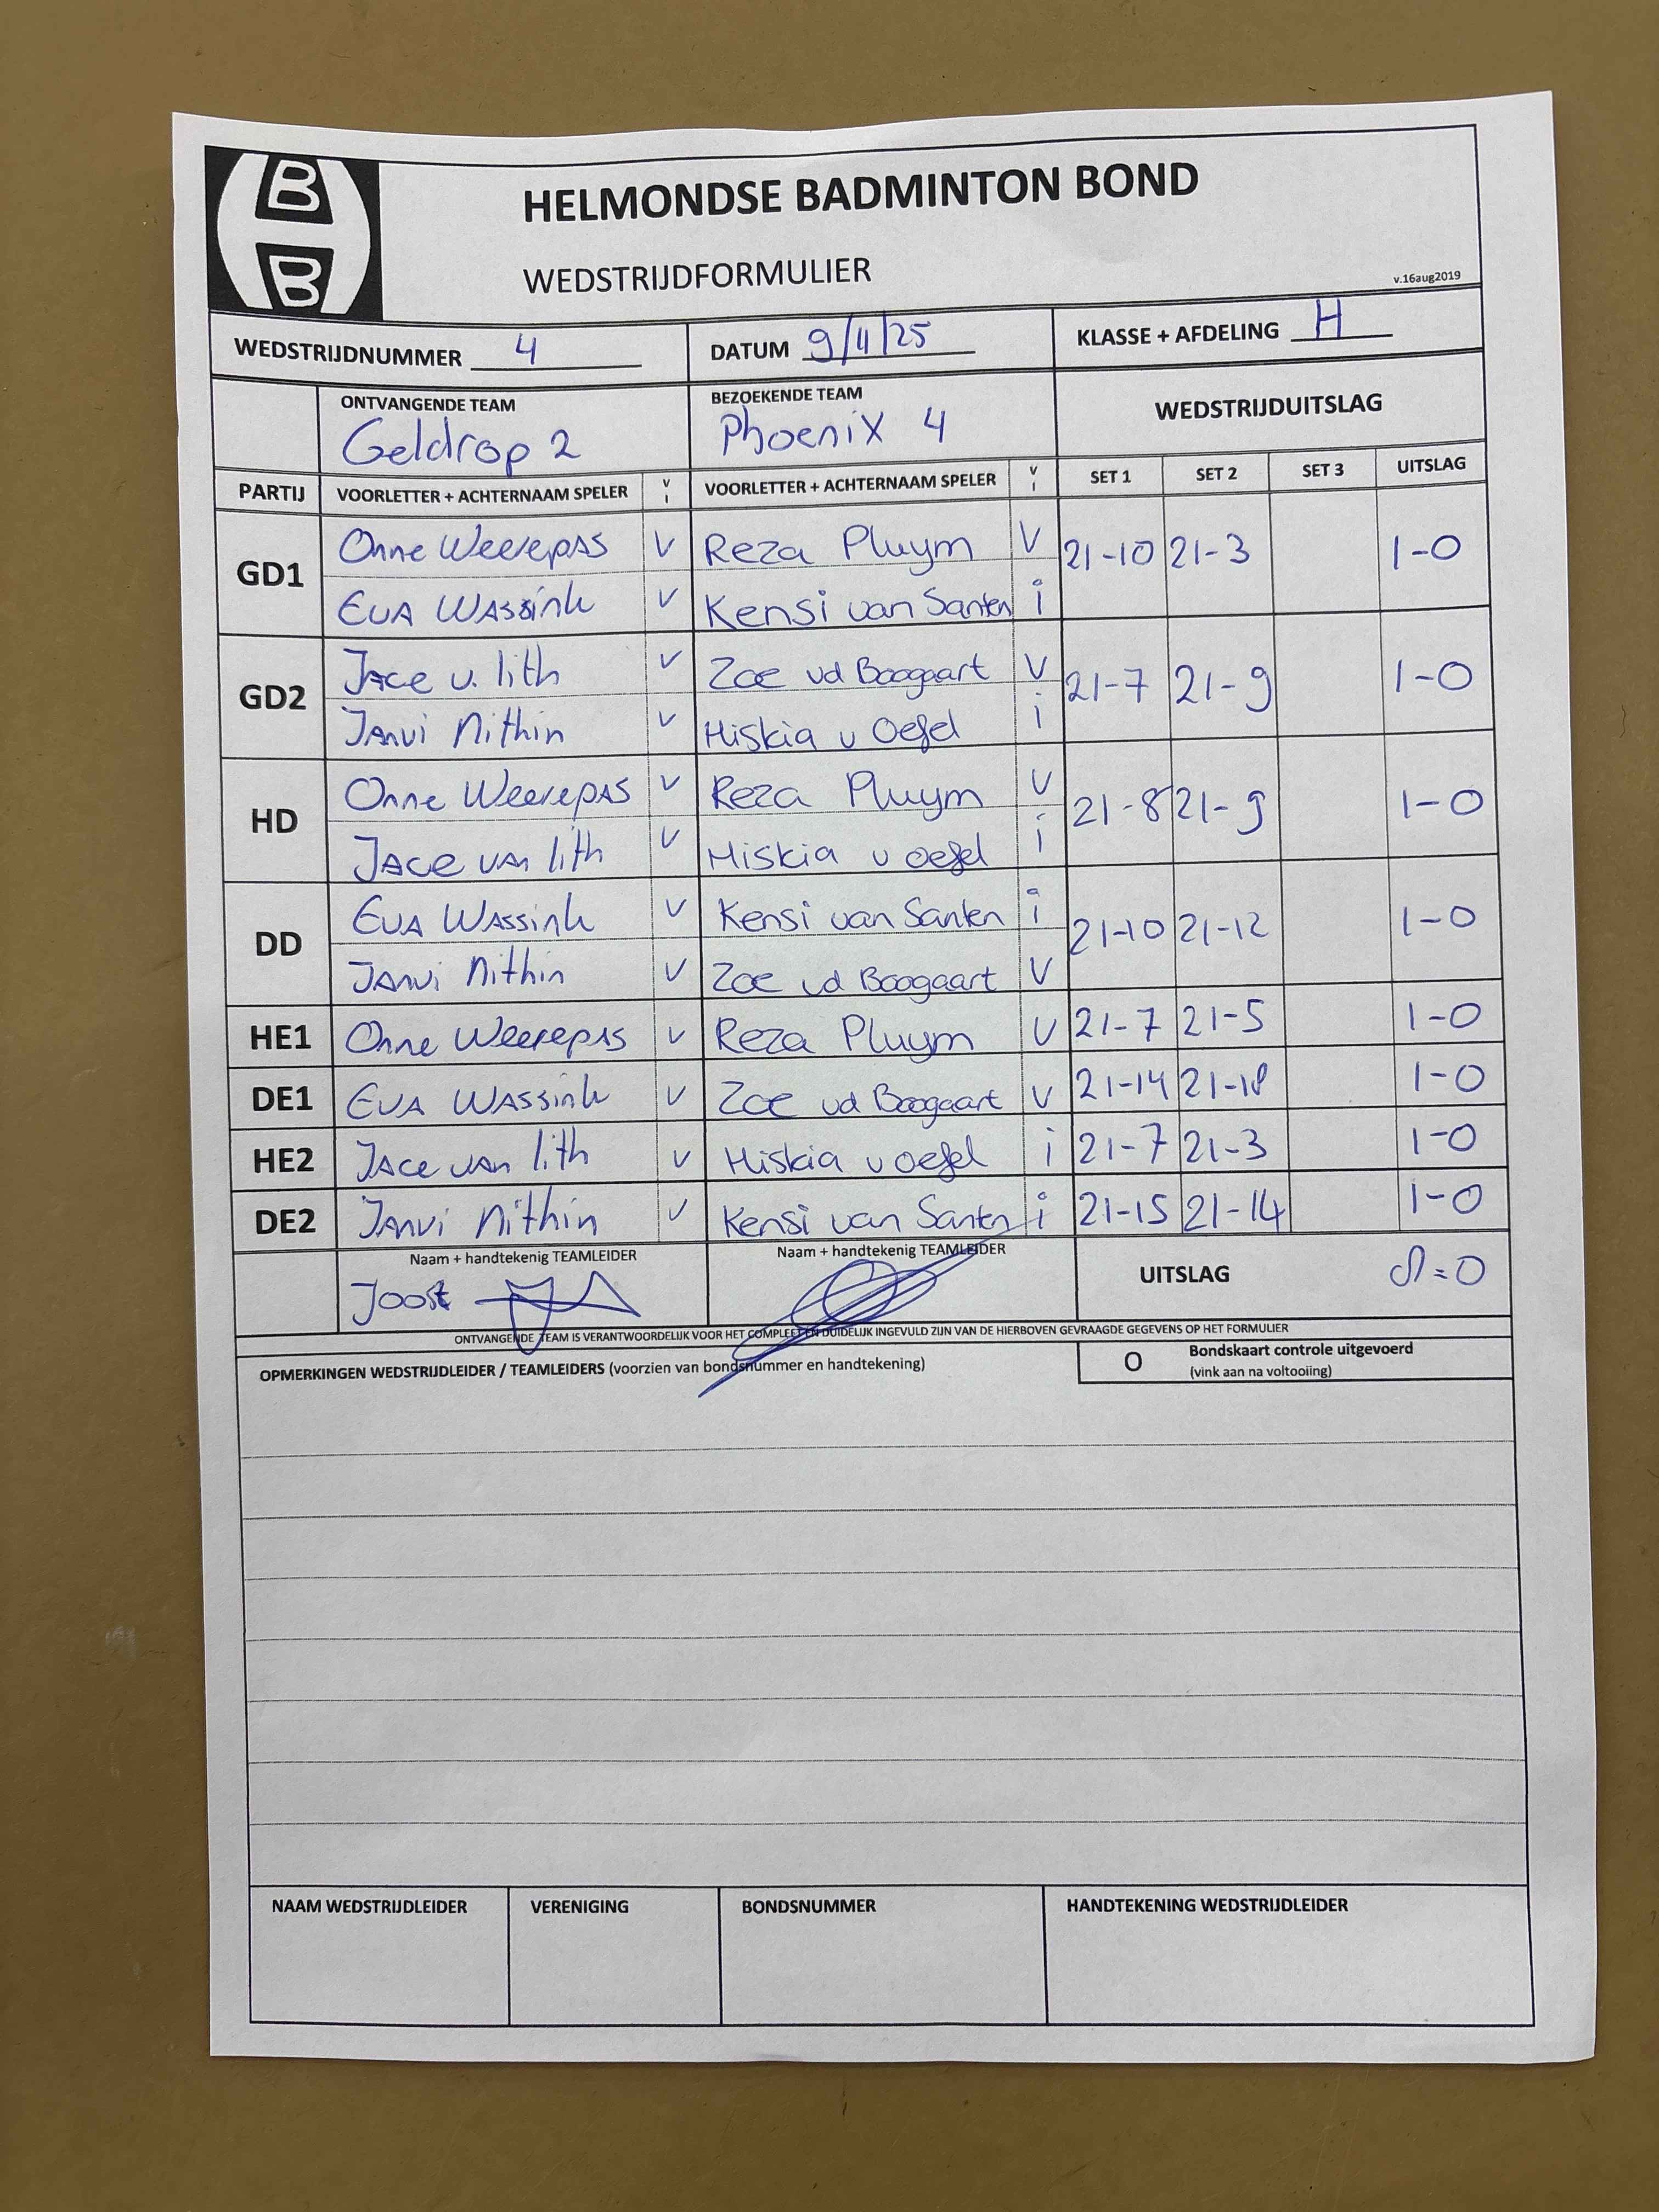 B
B
HELMONDSE BADMINTON BOND
WEDSTRIJDFORMULIER
v.16aug2019
WEDSTRIJDNUMMER 4 DATUM 9/11/25 KLASSE + AFDELING H
ONTVANGENDE TEAM BEZOEKENDE TEAM WEDSTRIJDUITSLAG
Geldrop 2 Phoenix 4
PARTIJ VOORLETTER + ACHTERNAAM SPELER V I VOORLETTER + ACHTERNAAM SPELER V I SET 1 SET 2 SET 3 UITSLAG
GD1 Onne Weerepas V Reza Pluym V 21-10 21-3 1-0
Eva Wassink V Kensi van Santen i
GD2 Jace v. lith V Zoe vd Boogaart V 21-7 21-9 1-0
Janvi Nithin V Hiskia v Oefel i
HD Onne Weerepas V Reza Pluym V 21-8 21-9 1-0
Jace van lith V Hiskia v oefel i
DD Eva Wassink V Kensi van Santen i 21-10 21-12 1-0
Janvi Nithin V Zoe vd Boogaart V
HE1 Onne Weerepas V Reza Pluym V 21-7 21-5 1-0
DE1 Eva Wassink V Zoe vd Boogaart V 21-14 21-18 1-0
HE2 Jace van lith V Hiskia v oefel i 21-7 21-3 1-0
DE2 Janvi Nithin V Kensi van Santen i 21-15 21-14 1-0
Naam + handtekenig TEAMLEIDER Naam + handtekenig TEAMLEIDER UITSLAG 8-0
Joost
ONTVANGENDE TEAM IS VERANTWOORDELIJK VOOR HET COMPLEET EN DUIDELIJK INGEVULD ZIJN VAN DE HIERBOVEN GEVRAAGDE GEGEVENS OP HET FORMULIER
OPMERKINGEN WEDSTRIJDLEIDER / TEAMLEIDERS (voorzien van bondsnummer en handtekening)
O Bondskaart controle uitgevoerd
(vink aan na voltooiing)
NAAM WEDSTRIJDLEIDER VERENIGING BONDSNUMMER HANDTEKENING WEDSTRIJDLEIDER